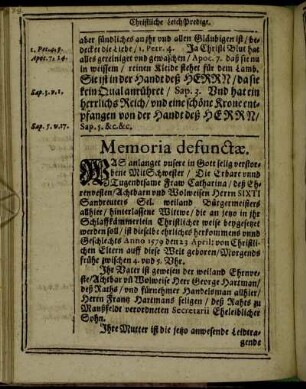 Christliche Leich Predigt.
aber sündliches an jhr und allen Gläubigen ist / be-
decket die Liebe / 1. Petr. 4. Ja Christi Blut hat
alles gereiniget und gewaschen / Apoc. 7. daß sie nu
in weissem / reinen Kleide stehet für dem Lamb.
Sie ist in der Hand deß HERRN / da sie
kein Qual anrühret / Sap. 3. Und hat ein
herrlichs Reich / und eine schöne Krone ent-
pfangen von der Hand deß HERRN /
Sap. 5. &c. &c.
1. Pet. 4. 8.
Apoc. 7. 14.
Sap. 3. v. 1.
Sap. 5. v. 17.
Memoria defunctæ.
WAS anlanget unsere in Gott selig verstor-
bene MitSchwester / Die Erbare unnd
Tugendsame Fraw Catharina / deß Eh-
renvesten / Achtbarn und Wolweisen Herrn SIXTI
Sandreuters Sel. weiland Bürgermeisters
allhier / hinterlassene Witwe / die an jetzo in jhr
Schlaffkämmerlein Christlicher weise beygesetzet
werden soll / ist dieselbe ehrliches herkommens unnd
Geschlechts Anno 1579 den 23 April: von Christli-
chen Eltern auff diese Welt geboren / Morgends
frühe zwischen 4. und 5. Uhr.
Ihr Vater ist gewesen der weiland Ehrenve-
ste / Achtbar uñ Wolweise Herr George Hartman /
deß Raths / und fürnehmer Handelsman allhier /
Herrn Frantz Hartmans seligen / deß Rahts zu
Manßfeldt verordneten Secretarii Eheleiblicher
Sohn.
Ihre Mutter ist die jetzo anwesende Leidtra-
gende